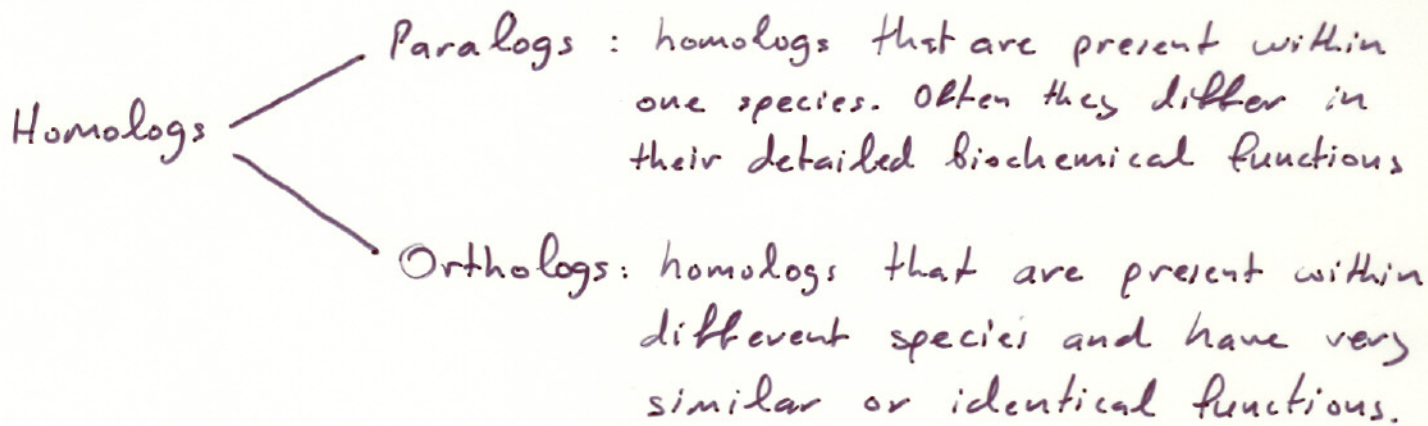 Paralogs : homologs that are present within
one species. Often they differ in
Homologs
their detailed biochemical functions
Orthologs: homologs that are present within
different species and have very
similar or identical functions.